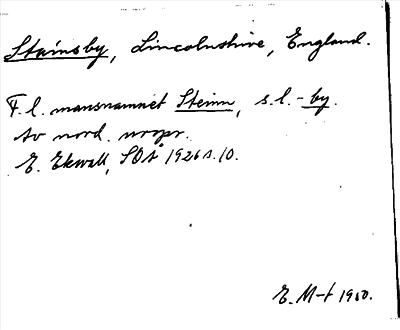 Stainsby, Lincolnshire, England.
F.l. mansnamnet Steinn, s.l. -by.
Av nord. urspr.
E. Ekwall, SOÅ 1926 s. 10.
E. M-t 1960.